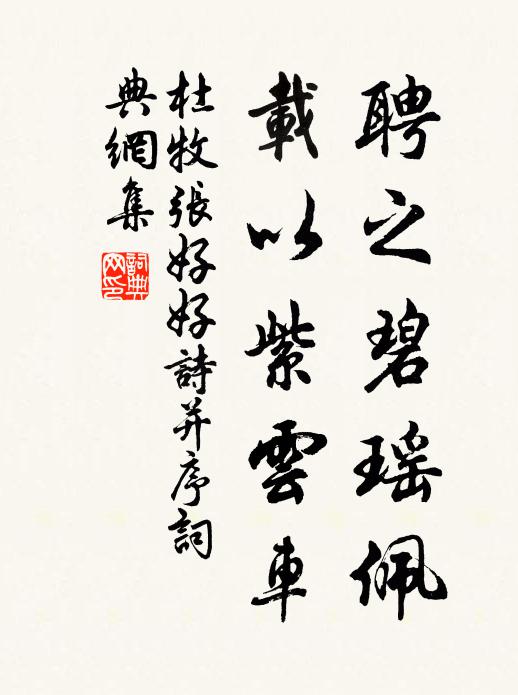 聘之碧瑶佩
載以紫雲車
杜牧張好好詩并序詞
典網集
詞典网印